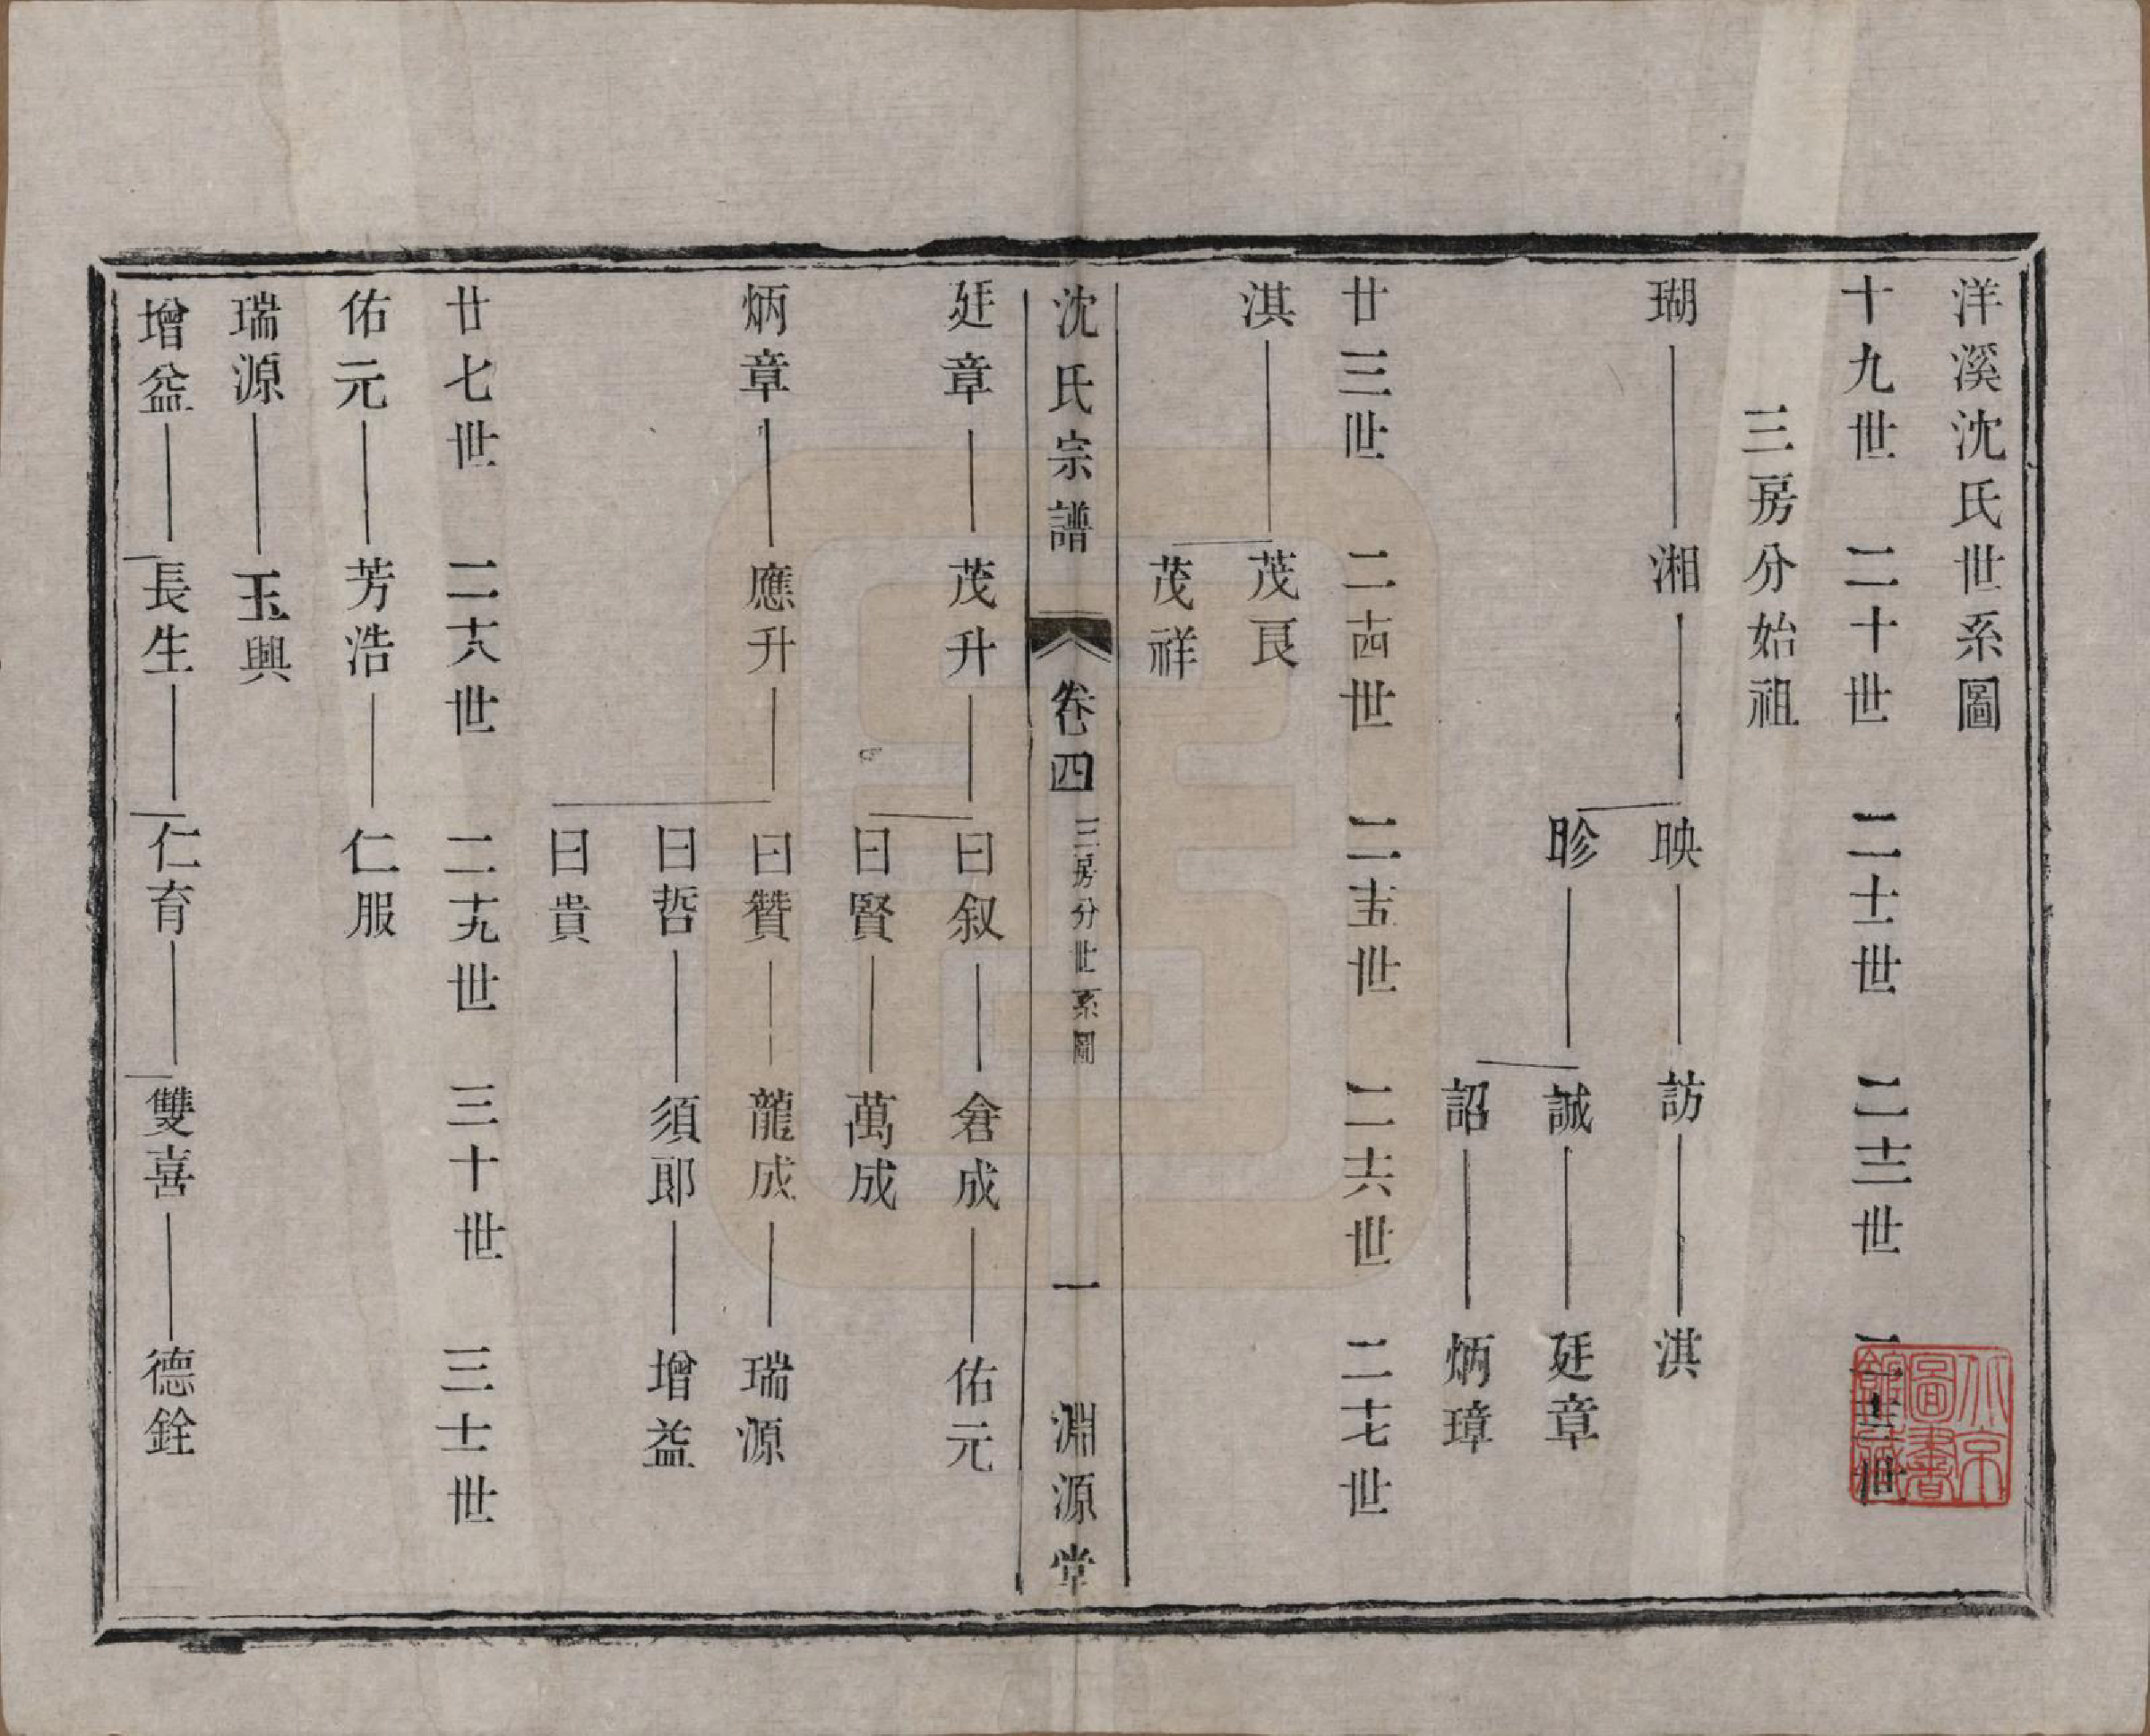 洋溪沈氏世系圖
十九世 二十世 二十一世 二十二世 二十三世
三房分始祖
瑚 湘 映 訪 淇
昣 誠 廷章
詔 炳璋
廿三世 二十四世 二十五世 二十六世 二十七世
淇 茂良
茂祥
沈氏宗譜 卷四 三房分世系圖 一 淵源堂
廷章 茂升 曰叙 倉成 佑元
曰賢 萬成
炳章 應升 曰贊 龍成 瑞源
曰哲 須郎 增益
曰貴
廿七世 二十八世 二十九世 三十世 三十一世
佑元 芳浩 仁服
瑞源 玉興
增益 長生 仁育 雙喜 德銓
北京圖書館藏